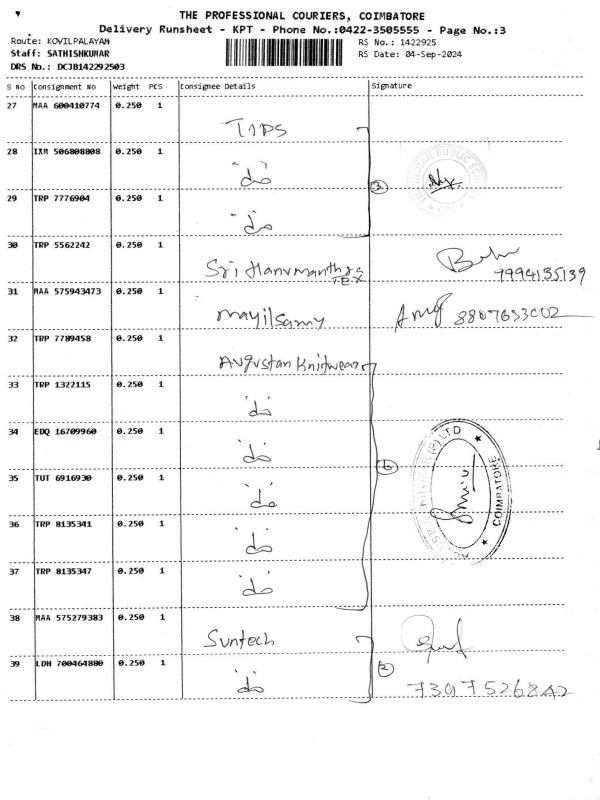 THE PROFESSIONAL COURIERS, COIMBATORE
Delivery Runsheet - KPT - Phone No.:0422-3505555 - Page No.:3
Route: KOVILPALAYAM
RS No.: 1422925
Staff: SATHISHKUMAR
RS Date: 04-Sep-2024
DRS No.: DCJB142292503
S No Consignment No Weight PCS Consignee Details Signature
27 MAA 600410774 0.250 1
TIPS
28 IXM 506808808 0.250 1
"do
3
29 TRP 7776904 0.250 1
"do
30 TRP 5562242 0.250 1
Sri Hanumanthraa TEX
9994135139
31 MAA 575943473 0.250 1
mayilsamy
32 TRP 7789458 0.250 1
Augustan Knitwear
33 TRP 1322115 0.250 1
"do
34 EDQ 16709960 0.250 1
"do
6
(P) LTD
COIMBATORE
35 TUT 6916930 0.250 1
"do
36 TRP 8135341 0.250 1
"do
37 TRP 8135347 0.250 1
"do
38 MAA 575279383 0.250 1
Suntech
39 LDH 700464880 0.250 1
"do
2
7397526842